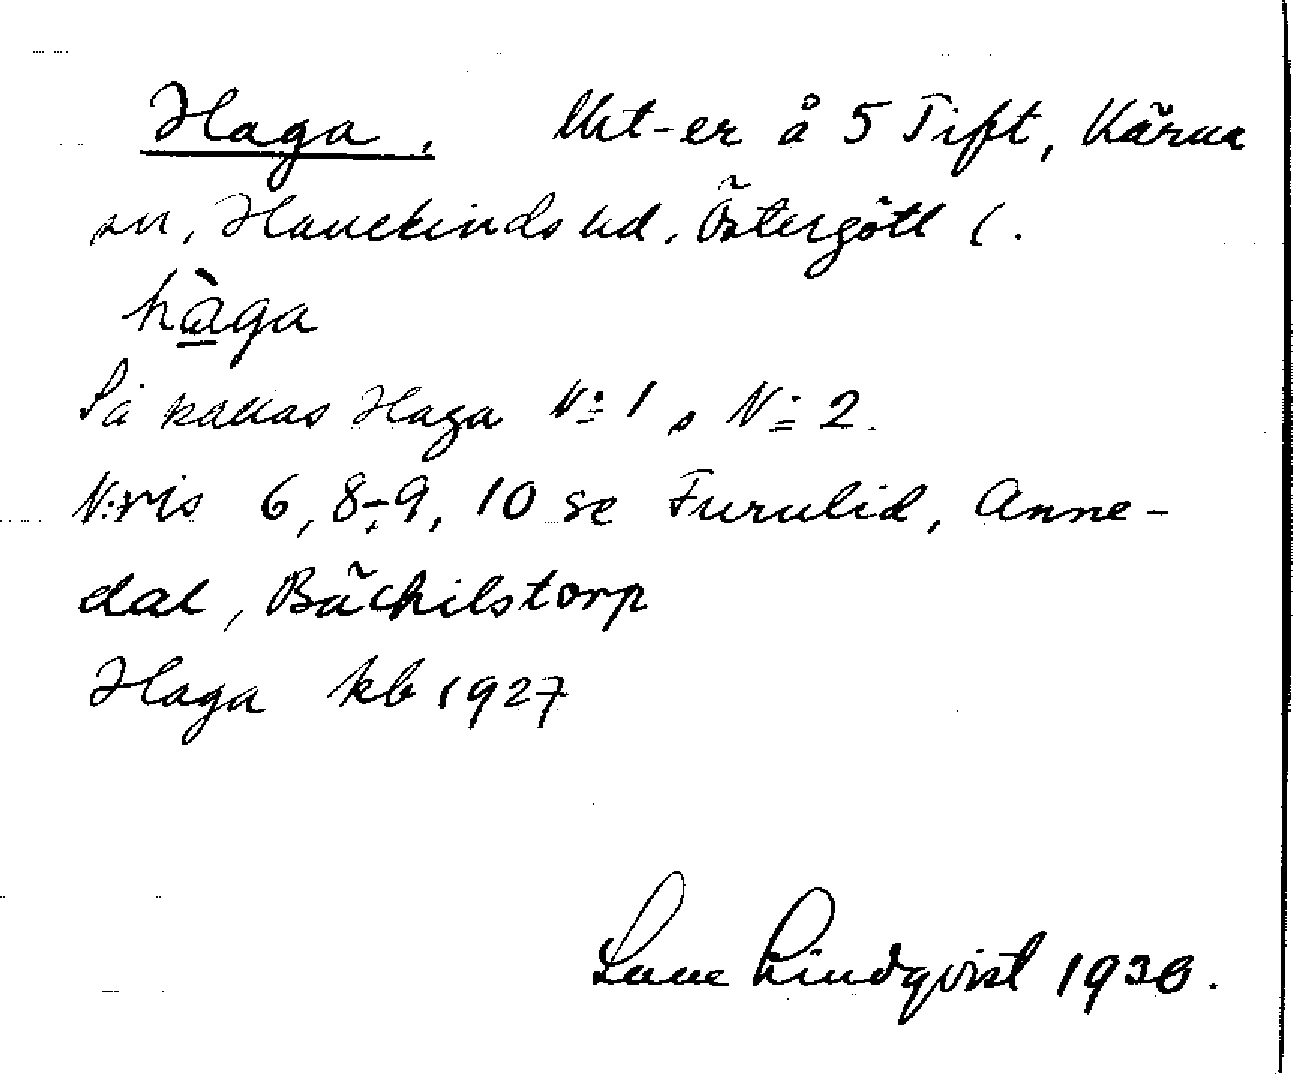 Haga. Utt-er å 5 Tift, Kärna
sn, Hanekinds hd, Östergötl l.
hàga
Så kallas Haga N:1, N:2.
N:ris 6, 8-9, 10 se Furulid, Anne-
dal, Bäckilstorp
Haga kb 1927
Lindqvist 1930.